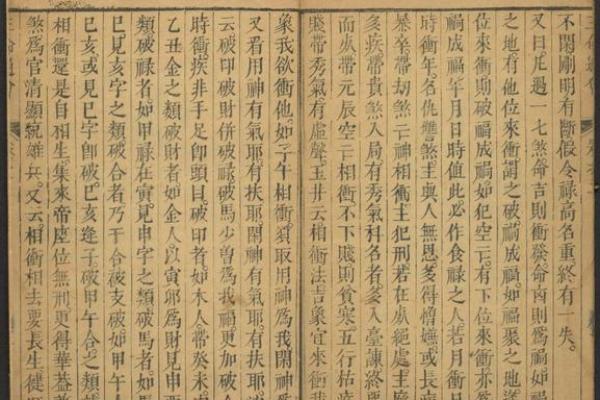 不閑剛明有斷假令祿高名重終有一失。
又曰凡遇一七煞命吉則衝發命凶則爲禍如禍
之地有他位來衝謂之破禍成福如福聚之地逆
位來衝則破福成禍如犯空亡有下位來衝亦爲
福成福年月日時值此必作食祿之人若月衝日
時衝年名仇讐煞主與人無恩多得憎嫌或長病
暴卒帶劫煞亡神相衝主犯刑若在死絕處主
多疾帶貴煞入局有秀氣科名者多入臺諫終要
而火帶元辰空亡相衝不下賤則貧寒五行枯
賤帶秀氣有虛聲玉井云相衝法吉象宜來衝我
象我欲衝他如子午相衝須取用神爲我閑神爲
又看用神有氣耶有扶耶閑神有氣耶有扶耶
云破印破財併破祿破馬少爲我福更加破人
時衝疾非手足卽頭目破印者如木人帶癸未
乙丑金之類破財者如金人以寅卯爲財見申酉
類破祿者如甲祿在寅見申字之類破馬者如
巳見亥字之類破合者乃干合被支破如甲午人
己亥或見巳字卽破巳亥逢子破甲午合之類
相衝還是自相生集來帝座位無刑更得華蓋兼
煞爲官清顯統雄兵又云相衝相去要長生健